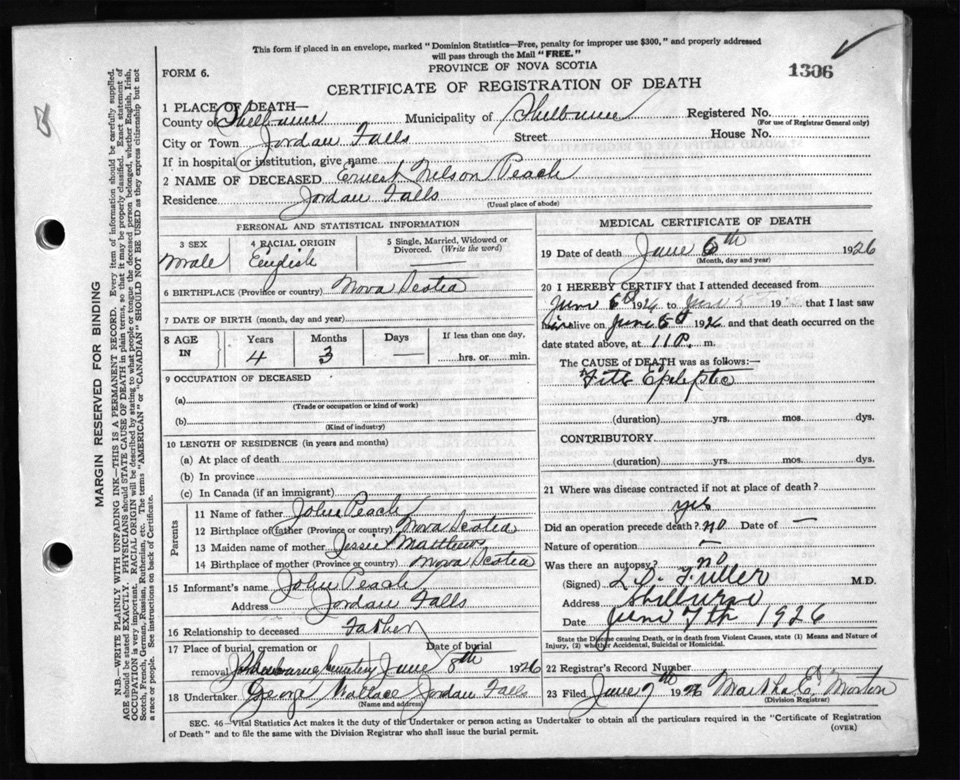 This form if placed in an envelope, marked "Dominion Statistics—Free, penalty for improper use $300," and properly addressed
will pass through the Mail "FREE."
PROVINCE OF NOVA SCOTIA
FORM 6.
CERTIFICATE OF REGISTRATION OF DEATH
1306
1 PLACE OF DEATH—
County of Shelburne Municipality of Shelburne Registered No.
(For use of Registrar General only)
City or Town Jordan Falls Street House No.
If in hospital or institution, give name
2 NAME OF DECEASED Ernest Nelson Peach
Residence Jordan Falls
(Usual place of abode)
PERSONAL AND STATISTICAL INFORMATION
3 SEX 4 RACIAL ORIGIN 5 Single, Married, Widowed or
Divorced. (Write the word)
Male English —
6 BIRTHPLACE (Province or country) Nova Scotia
7 DATE OF BIRTH (month, day and year)
8 AGE IN Years Months Days If less than one day,
4 3 — hrs. or min.
9 OCCUPATION OF DECEASED
(a)
(Trade or occupation or kind of work)
(b)
(Kind of industry)
10 LENGTH OF RESIDENCE (in years and months)
(a) At place of death
(b) In province
(c) In Canada (if an immigrant)
Parents
11 Name of father John Peach
12 Birthplace of father (Province or country) Nova Scotia
13 Maiden name of mother Jessie Matthews
14 Birthplace of mother (Province or country) Nova Scotia
15 Informant's name John Peach
Address Jordan Falls
16 Relationship to deceased Father
17 Place of burial, cremation or Date of burial
removal Cemetery June 8th 1926
18 Undertaker George Wallace Jordan Falls
(Name and address)
MEDICAL CERTIFICATE OF DEATH
19 Date of death June 6th 1926
(Month, day and year)
20 I HEREBY CERTIFY that I attended deceased from
June 1926 to June 5 19 that I last saw
alive on June 5 1926 and that death occurred on the
date stated above, at 11 P. m.
The CAUSE of DEATH was as follows:—
Fitts Epileptic
(duration) yrs. mos. dys.
CONTRIBUTORY
(duration) yrs. mos. dys.
21 Where was disease contracted if not at place of death?
yes
Did an operation precede death? no Date of —
Nature of operation —
Was there an autopsy? no
(Signed) L.O. Fuller M.D.
Address Shelburne
June 7th 1926
State the Disease causing Death, or in death from Violent Causes, state (1) Means and Nature of
Injury, (2) whether Accidental, Suicidal or Homicidal.
22 Registrar's Record Number
23 Filed June 7th 1926 Martha E. Morton
(Division Registrar)
SEC. 46—Vital Statistics Act makes it the duty of the Undertaker or person acting as Undertaker to obtain all the particulars required in the "Certificate of Registration
of Death" and to file the same with the Division Registrar who shall issue the burial permit.
(OVER)
MARGIN RESERVED FOR BINDING
N.B.—WRITE PLAINLY WITH UNFADING INK—THIS IS A PERMANENT RECORD. Every item of information should be carefully supplied.
AGE should be stated EXACTLY. PHYSICIANS should STATE CAUSE OF DEATH in plain terms, so that it may be properly classified. Exact statement of
OCCUPATION is very important. RACIAL ORIGIN will be described by stating to what people or tongue the deceased person belonged, whether English, Irish,
Scotch, French, German, Russian, Ruthenian, etc. The terms "AMERICAN" or "CANADIAN" SHOULD NOT BE USED as they express citizenship but not
a race or people. See instructions on back of Certificate.